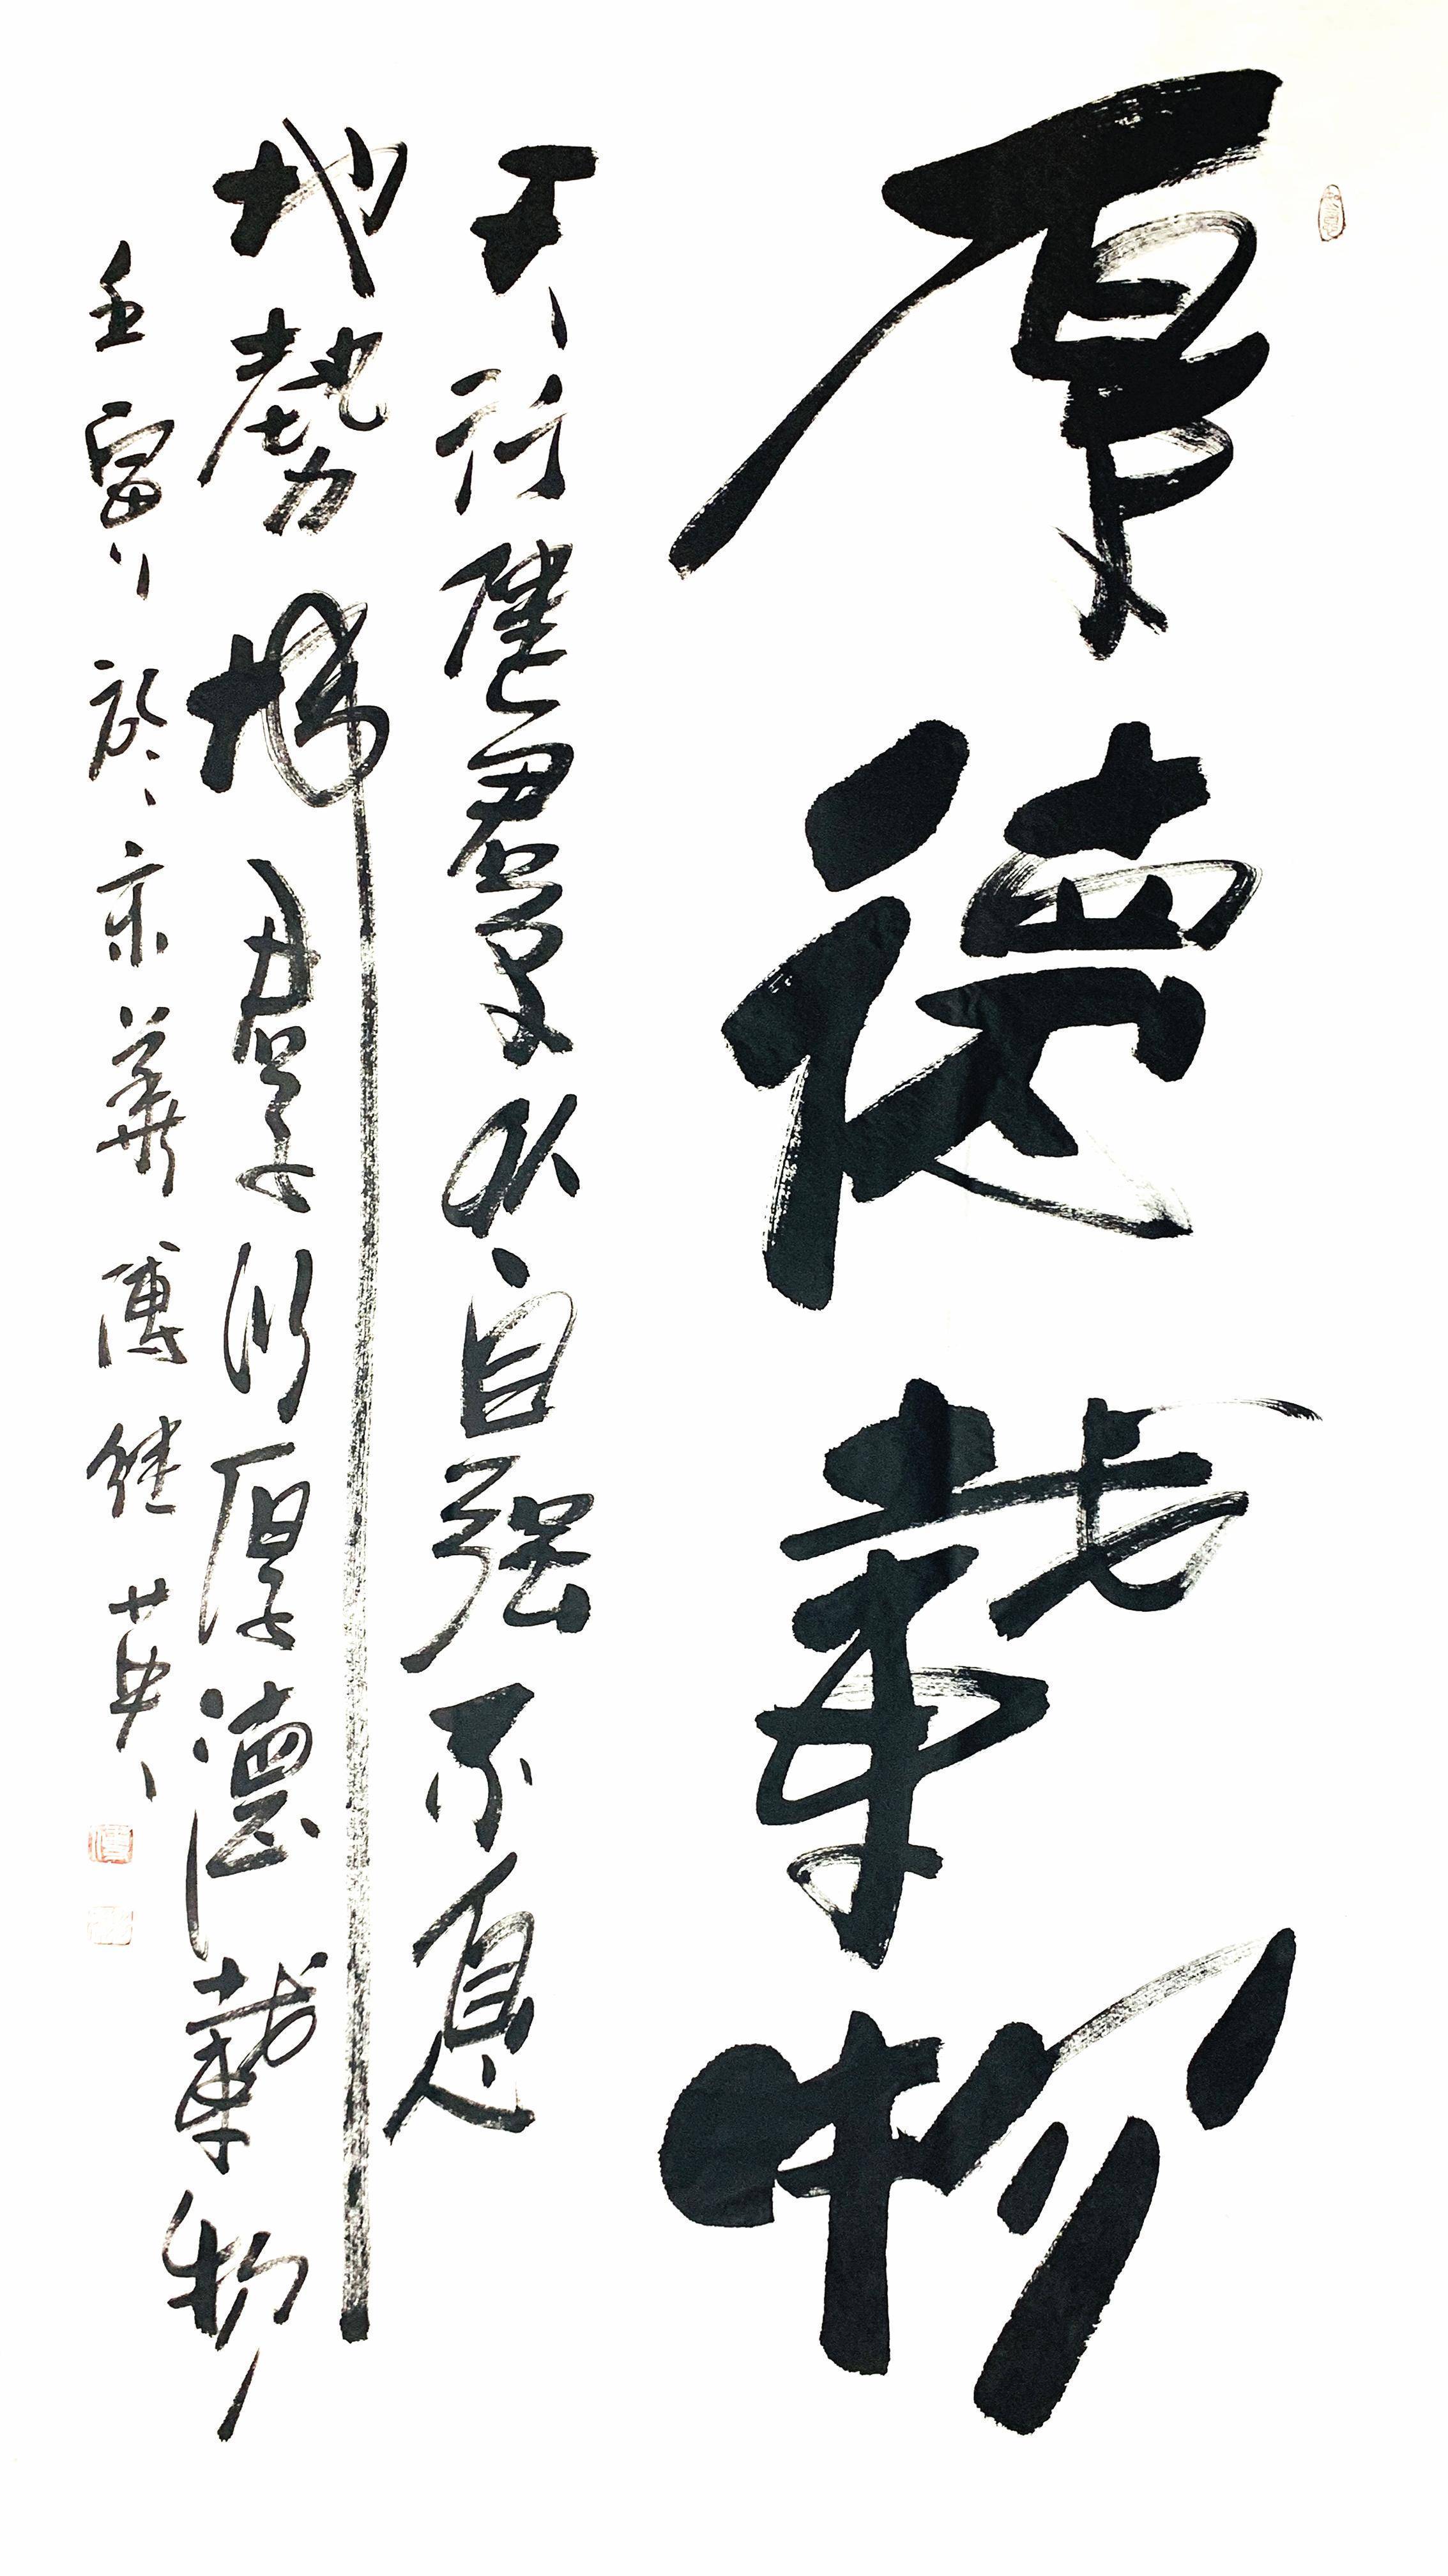 厚德载物
天行健君子以自强不息
地勢坤君子以厚德载物
壬寅於京華傅继英